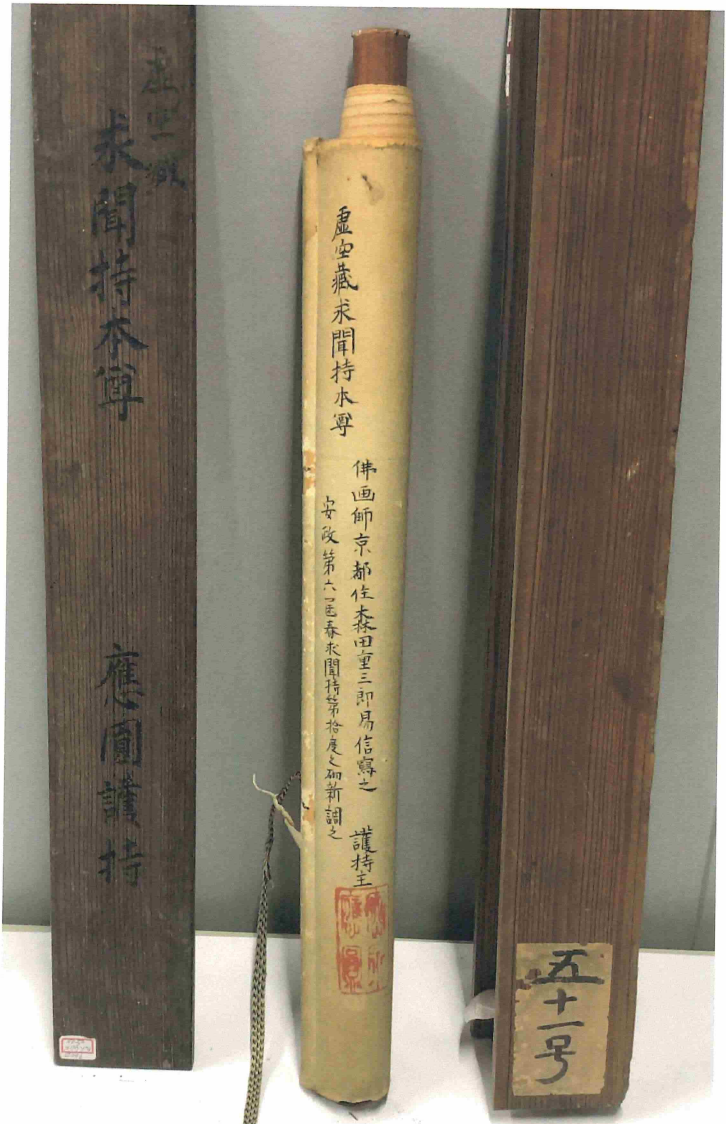 虚空藏
求聞持本尊
應圓護持
虚空藏求聞持本尊
佛画師京都住森田重三郎易信寫之
護持主
安政第六 春求聞持第拾度之砌新調之
五十一号